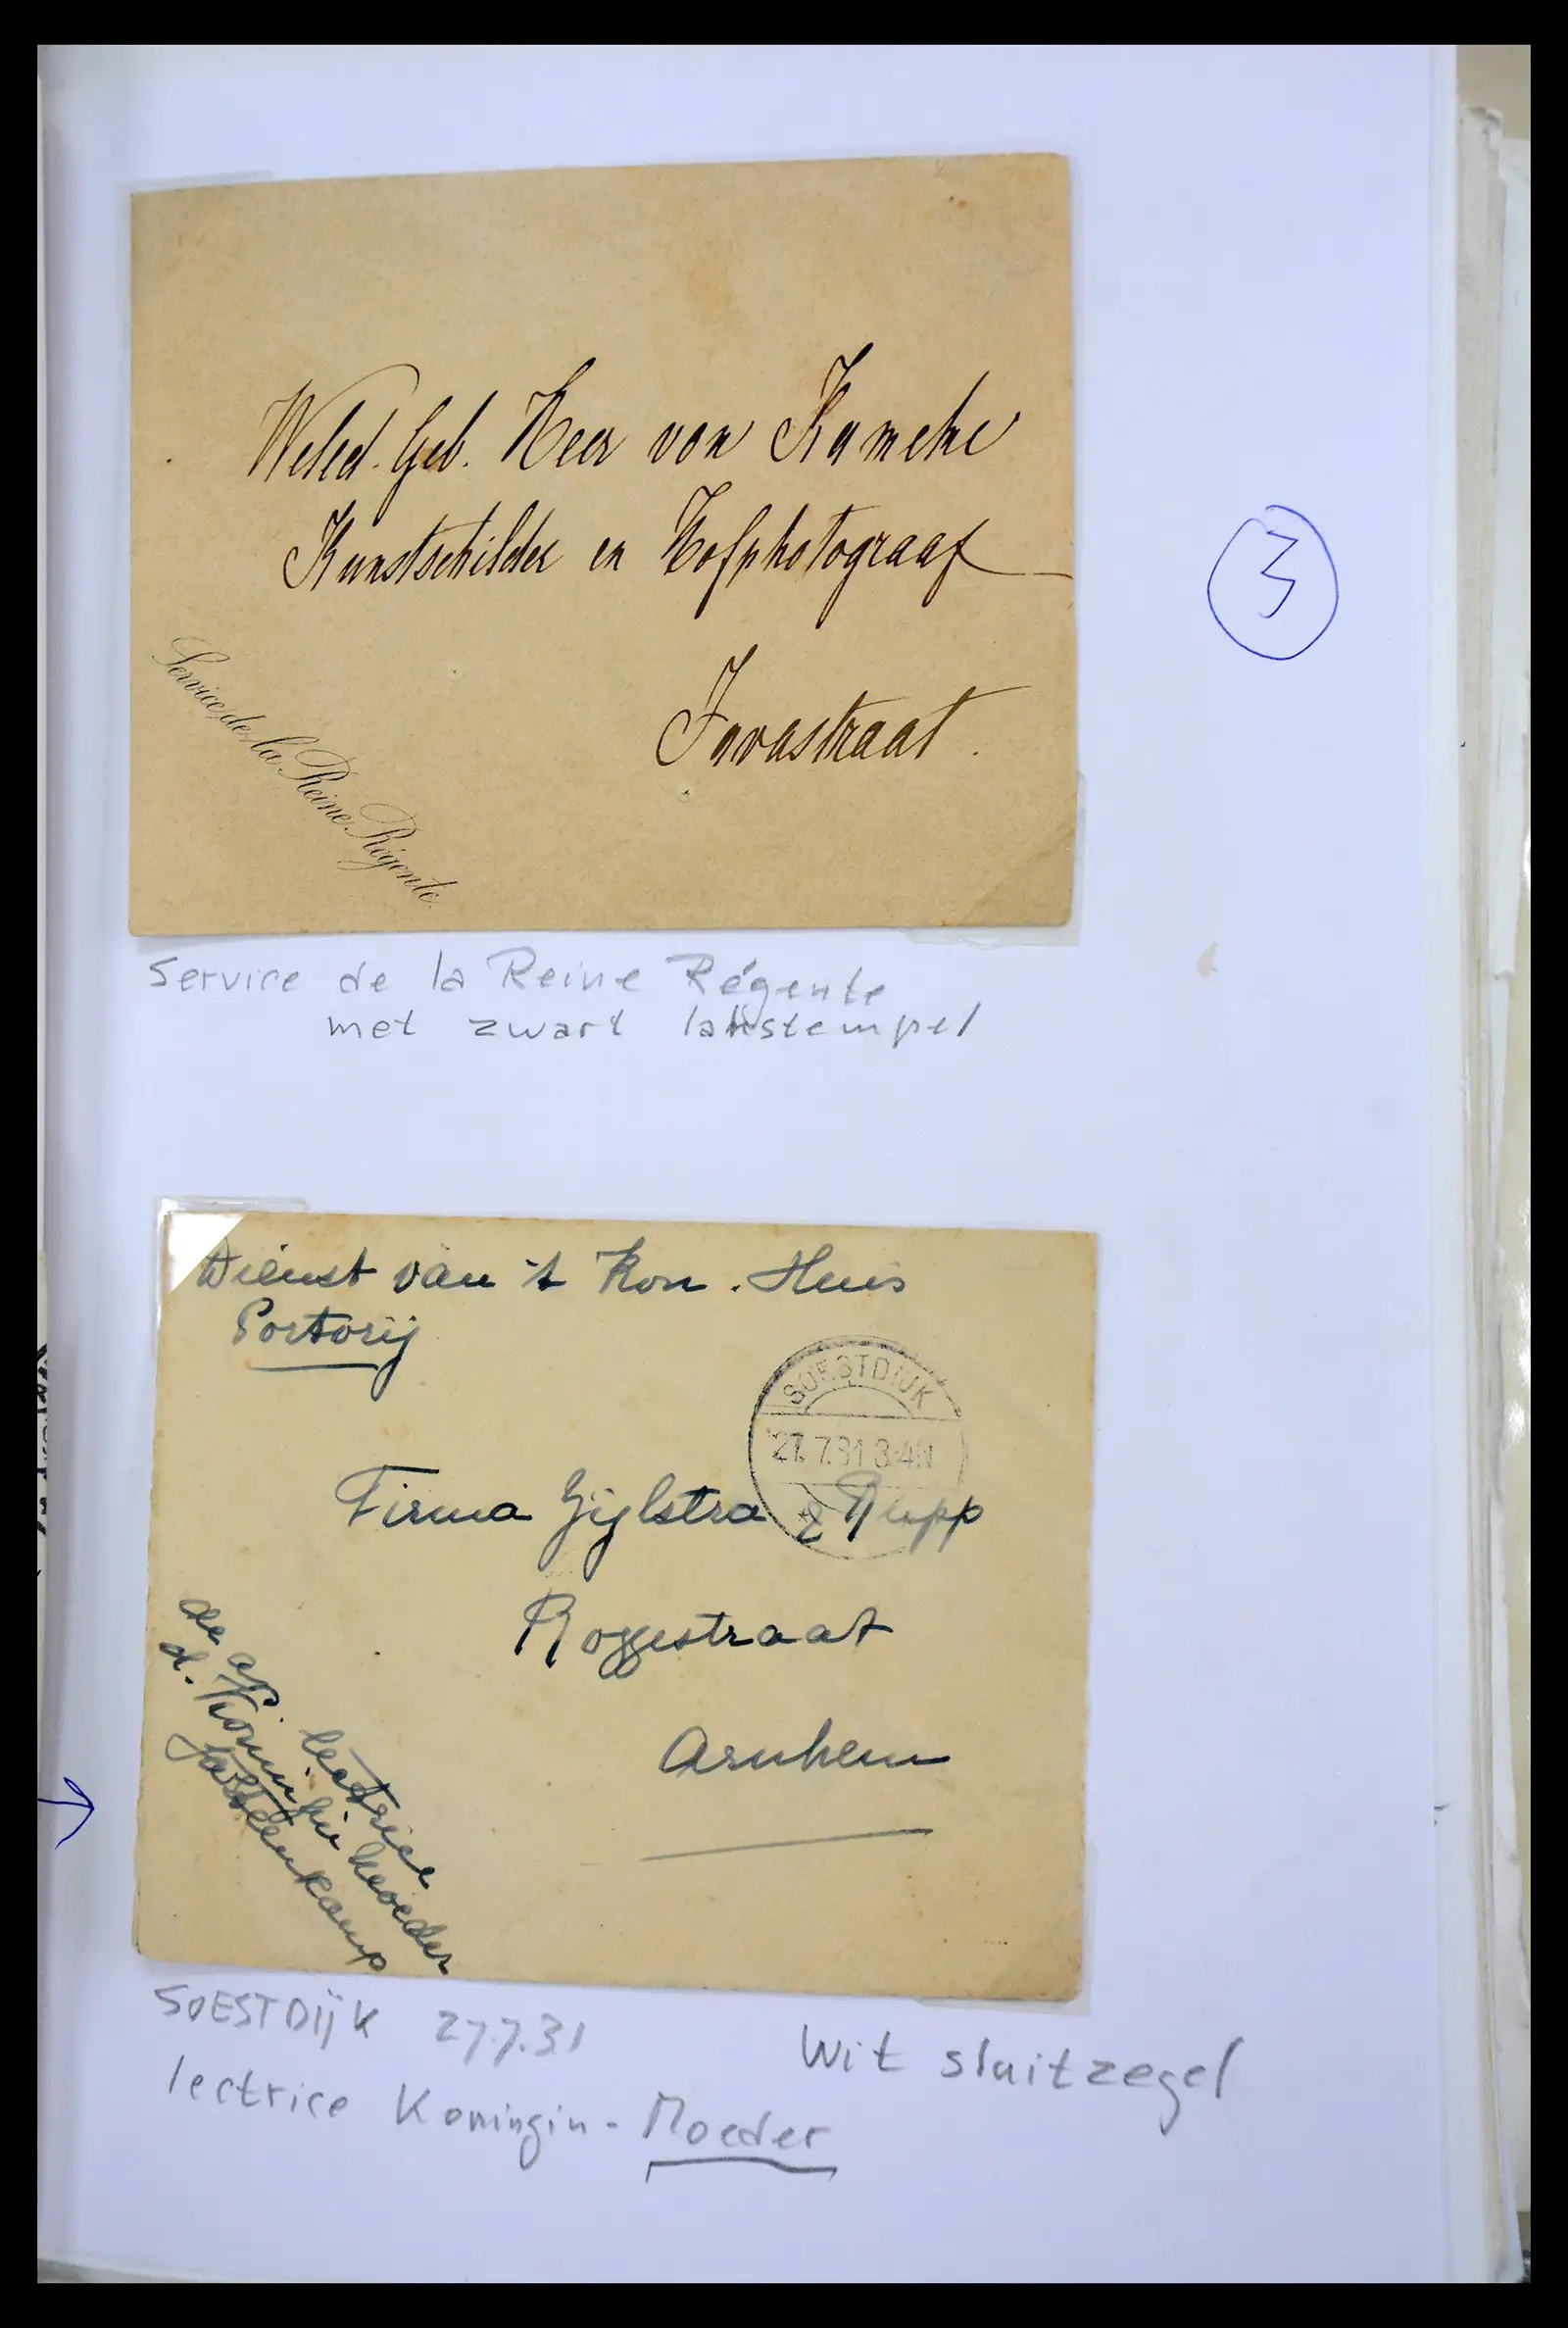 Weled. Geb. Heer von Kameke
Kunstschilder en Hofphotograaf
Javastraat.
Service de la Reine Régente
3
Service de la Reine Régente
met zwart lakstempel
Dienst van 't Kon. Huis
Portvrij
SOESTDIJK
27.7.31 3-4N
Firma Gijlstra & Rupp
Roggestraat
Arnhem
lectrice
d. Koningin Moeder
SOESTDIJK 27.7.31
Wit sluitzegel
lectrice Koningin-Moeder